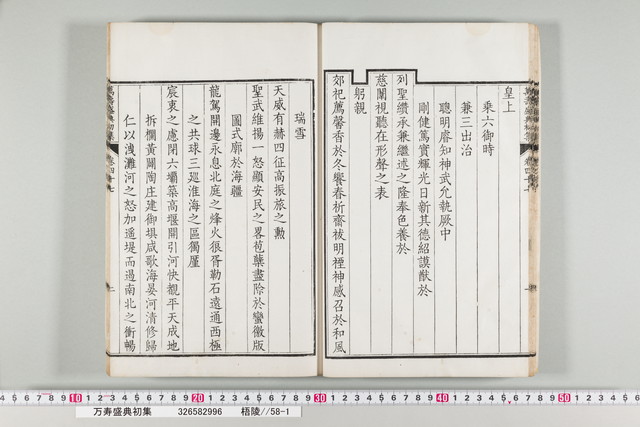 皇上
乘六御時
兼三出治
聰明睿知神武允執厥中
剛健篤實輝光日新其德紹謨猷於
列聖纘承兼繼述之隆奉色養於
慈闈視聽在形聲之表
躬親
郊祀薦馨香於冬饗春祈齋祓明禋神感召於和風
瑞雪
天威有赫四征高振旅之勳
聖武維揚一怒顯安民之畧苞蘖盡除於蠻徼版
圖式廓於海疆
龍駕開邊永息北庭之烽火狼胥勒石遠通西極
之共球三廵淮海之區獨厪
宸衷之慮閉六壩築高堰開引河快覩平天成地
拆欄黃闢陶庄建御壩咸歌海晏河清修歸
仁以洩灘河之怒加遥堤而遏南北之衝暢
10 20 30 40 50 60
万寿盛典初集 326582996 梧陵//58-1